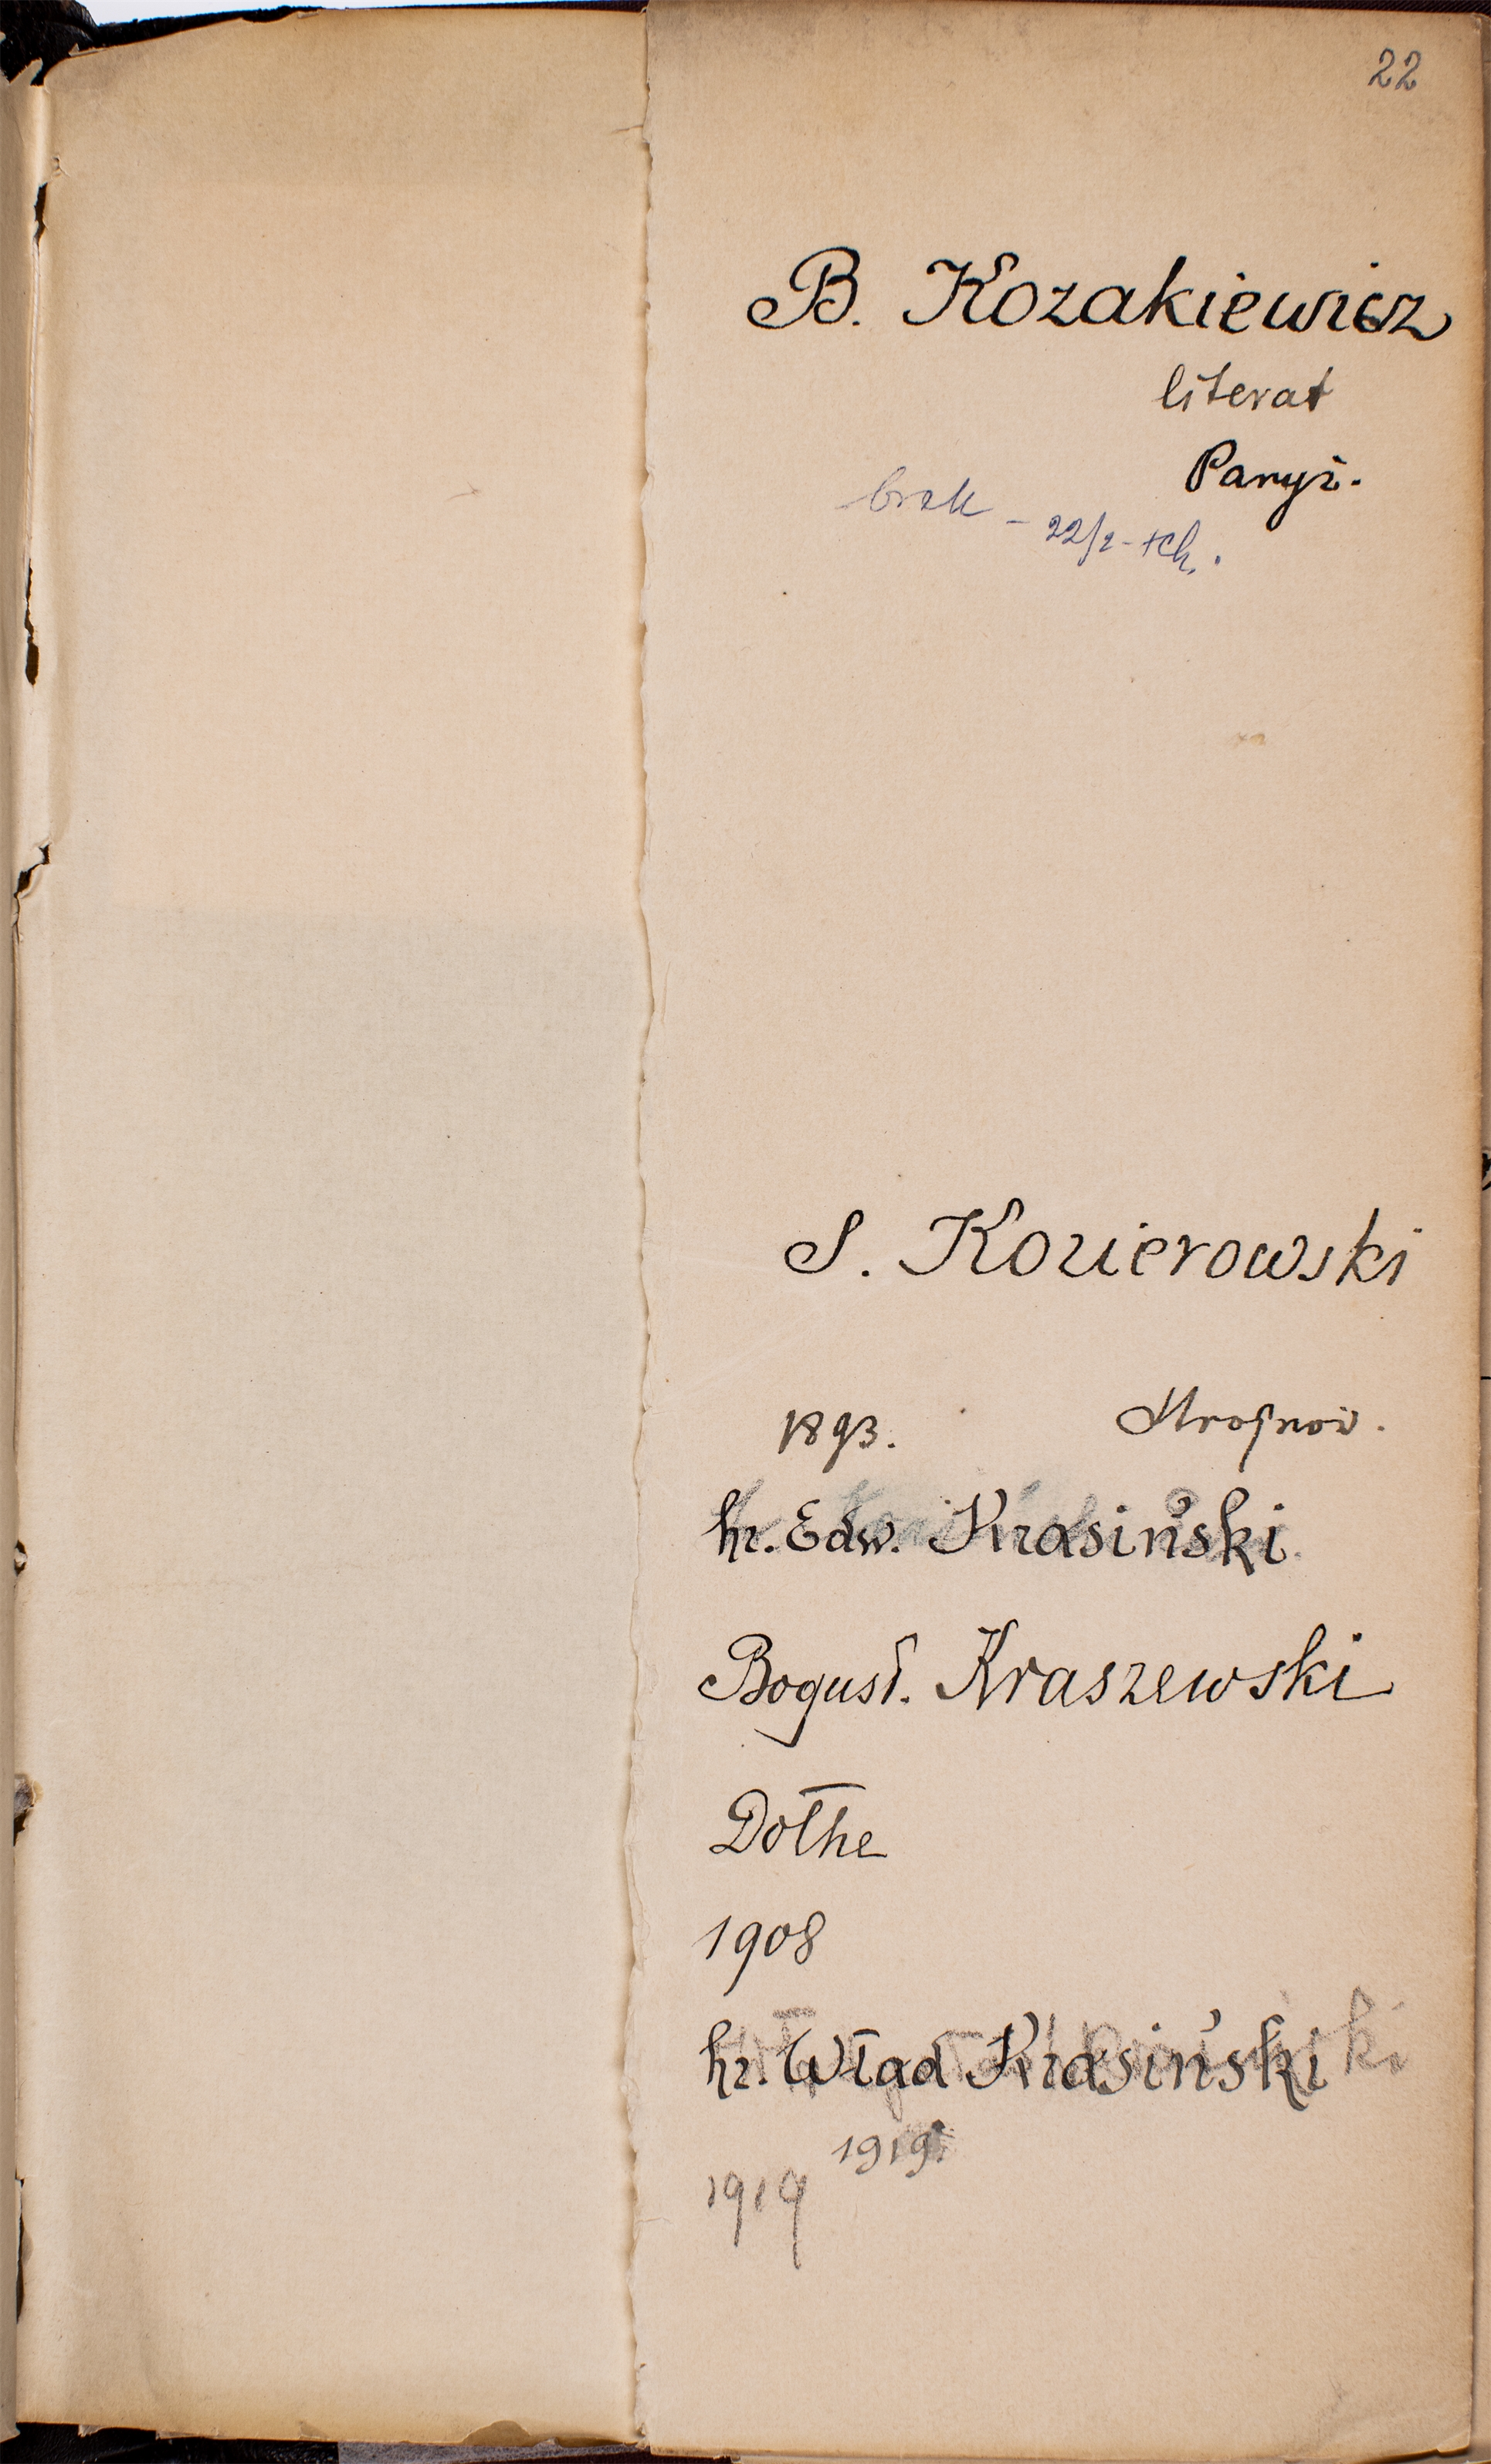 22
B. Kozakiewicz
literat
Paryż.
brak – 22/2 -
S. Kozierowski
1893.
hr. Edw. Krasiński
Bogusł. Kraszewski
Dołhe
1908
hr. Wład Krasiński
1919.
1919